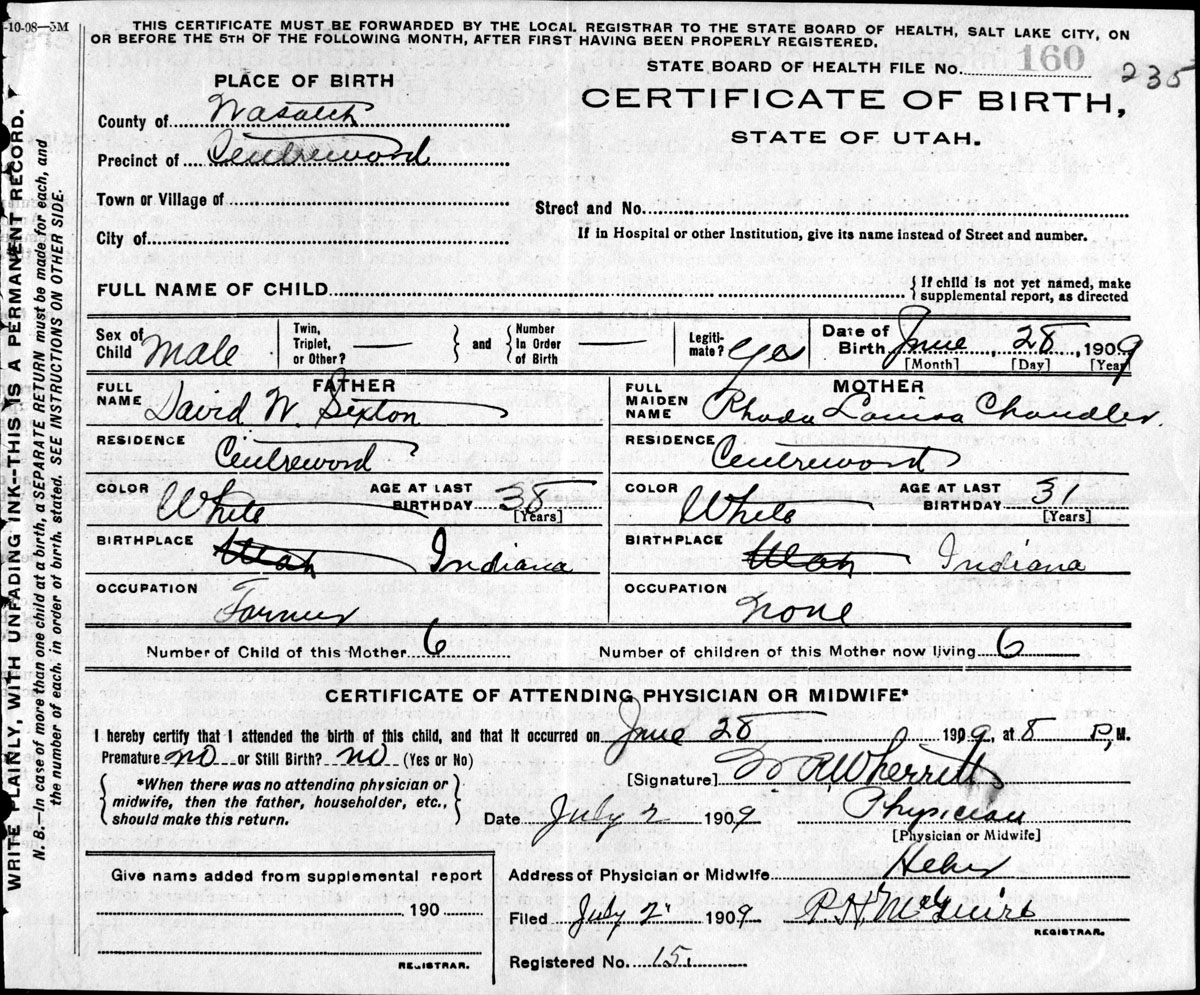 -10-08—5M
THIS CERTIFICATE MUST BE FORWARDED BY THE LOCAL REGISTRAR TO THE STATE BOARD OF HEALTH, SALT LAKE CITY, ON
OR BEFORE THE 5TH OF THE FOLLOWING MONTH, AFTER FIRST HAVING BEEN PROPERLY REGISTERED.
STATE BOARD OF HEALTH FILE No. 160 235
PLACE OF BIRTH
CERTIFICATE OF BIRTH,
STATE OF UTAH.
County of Wasatch
Precinct of Centreword
Town or Village of
Street and No.
City of
If in Hospital or other Institution, give its name instead of Street and number.
FULL NAME OF CHILD
{ If child is not yet named, make
supplemental report, as directed
Sex of Child Male
Twin, Triplet, or Other? —
} and {
Number In Order of Birth —
Legiti-mate? Yes
Date of Birth June, 28, 1909
[Month] [Day] [Year]
FATHER
FULL NAME David W. Sexton
RESIDENCE Centreword
COLOR White AGE AT LAST BIRTHDAY 38 [Years]
BIRTHPLACE Utah Indiana
OCCUPATION Farmer
MOTHER
FULL MAIDEN NAME Rhoda Louisa Chandler.
RESIDENCE Centreword
COLOR White AGE AT LAST BIRTHDAY 31 [Years]
BIRTHPLACE Utah Indiana
OCCUPATION None
Number of Child of this Mother 6
Number of children of this Mother now living 6
CERTIFICATE OF ATTENDING PHYSICIAN OR MIDWIFE*
I hereby certify that I attended the birth of this child, and that it occurred on June 28 1909, at 8 P, M.
Premature no or Still Birth? no (Yes or No)
{ *When there was no attending physician or
midwife, then the father, householder, etc.,
should make this return. }
[Signature] Wherritt
Date July 2 1909 Physician
[Physician or Midwife]
Give name added from supplemental report
190
REGISTRAR.
Address of Physician or Midwife Heber
Filed July 2 1909 McGuire
REGISTRAR.
Registered No. 15.
WRITE PLAINLY, WITH UNFADING INK--THIS IS A PERMANENT RECORD.
N. B.—In case of more than one child at a birth, a SEPARATE RETURN must be made for each, and
the number of each, in order of birth, stated. SEE INSTRUCTIONS ON OTHER SIDE.